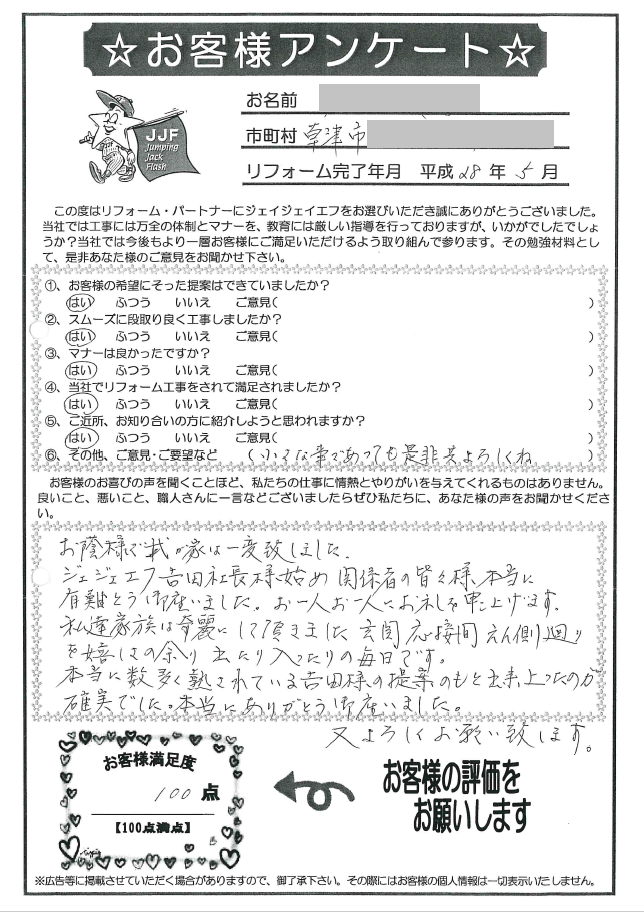 ☆お客様アンケート☆
お名前
JJF
Jumping
Jack
Flash
市町村 草津市
リフォーム完了年月 平成28年5月
この度はリフォーム・パートナーにジェイジェイエフをお選びいただき誠にありがとうございました。
当社では工事には万全の体制とマナーを、教育には厳しい指導を行っておりますが、いかがでしたでしょ
うか？当社では今後もより一層お客様にご満足いただけるよう取り組んで参ります。その勉強材料とし
て、是非あなた様のご意見をお聞かせ下さい。
①、お客様の希望にそった提案はできていましたか？
はい ふつう いいえ ご意見( )
②、スムーズに段取り良く工事しましたか？
はい ふつう いいえ ご意見( )
③、マナーは良かったですか？
はい ふつう いいえ ご意見( )
④、当社でリフォーム工事をされて満足されましたか？
はい ふつう いいえ ご意見( )
⑤、ご近所、お知り合いの方に紹介しようと思われますか？
はい ふつう いいえ ご意見( )
⑥、その他、ご意見・ご要望など (小さな事であっても是非共よろしくね )
お客様のお喜びの声を聞くことほど、私たちの仕事に情熱とやりがいを与えてくれるものはありません。
良いこと、悪いこと、職人さんに一言などございましたらぜひ私たちに、あなた様の声をお聞かせくださ
い。
お蔭様で我が家は一変致しました。
ジェジェエフ吉田社長様始め関係者の皆々様本当に
有難とう御座いました。お一人お一人にお礼を申し上げます。
私達家族は奇麗にして頂きました玄関応接間えん側廻り
を嬉しさの余り出たり入ったりの毎日です。
本当に数多く熟されている吉田様の提案のもと出来上ったのが
確実でした。本当にありがとう御座いました。
又よろしくお願い致します。
お客様満足度
100点
【100点満点】
お客様の評価を
お願いします
※広告等に掲載させていただく場合がありますので、御了承下さい。その際にはお客様の個人情報は一切表示いたしません。